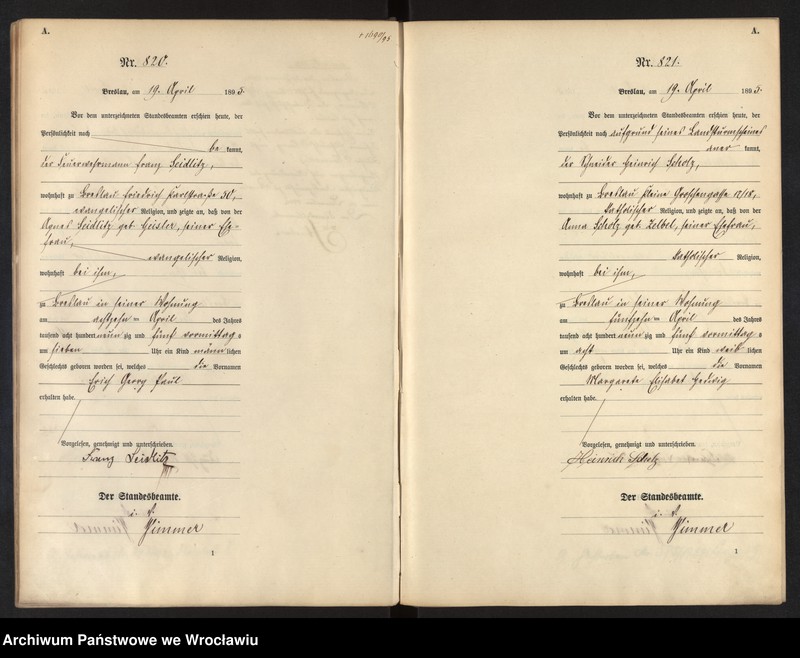 A.
Nr. 820.
Breslau, am 19. April 1895.
Vor dem unterzeichneten Standesbeamten erschien heute, der
Persönlichkeit nach
be kannt,
der Feuerwehrmann Franz Seidlitz,
wohnhaft zu Breslau Friedrich Karlstraße 30,
evangelischer Religion, und zeigte an, daß von der
Agnes Seidlitz geb. Geisler, seiner Ehe-
frau,
evangelischer Religion,
wohnhaft bei ihm,
zu Breslau in seiner Wohnung
am achtzehnten April des Jahres
tausend acht hundert neun zig und fünf vormittags
um sieben Uhr ein Kind männ lichen
Geschlechts geboren worden sei, welches die Vornamen
Erich Georg Paul
erhalten habe.
Vorgelesen, genehmigt und unterschrieben.
Franz Seidlitz
Der Standesbeamte.
i. V.
1
A.
Nr. 821.
Breslau, am 19. April 1895.
Vor dem unterzeichneten Standesbeamten erschien heute, der
Persönlichkeit nach aufgrund seines Landsturmscheines
aner kannt,
der Schneider Heinrich Scholz,
wohnhaft zu Breslau kleine Groschengasse 17/18,
katholischer Religion, und zeigte an, daß von der
Anna Scholz geb. Zelbel, seiner Ehefrau,
katholischer Religion,
wohnhaft bei ihm,
zu Breslau in seiner Wohnung
am fünfzehnten April des Jahres
tausend acht hundert neun zig und fünf vormittags
um acht Uhr ein Kind weib lichen
Geschlechts geboren worden sei, welches die Vornamen
Margarete Elisabet Hedwig
erhalten habe.
Vorgelesen, genehmigt und unterschrieben.
Heinrich Scholz
Der Standesbeamte.
i. V.
1
Archiwum Państwowe we Wrocławiu